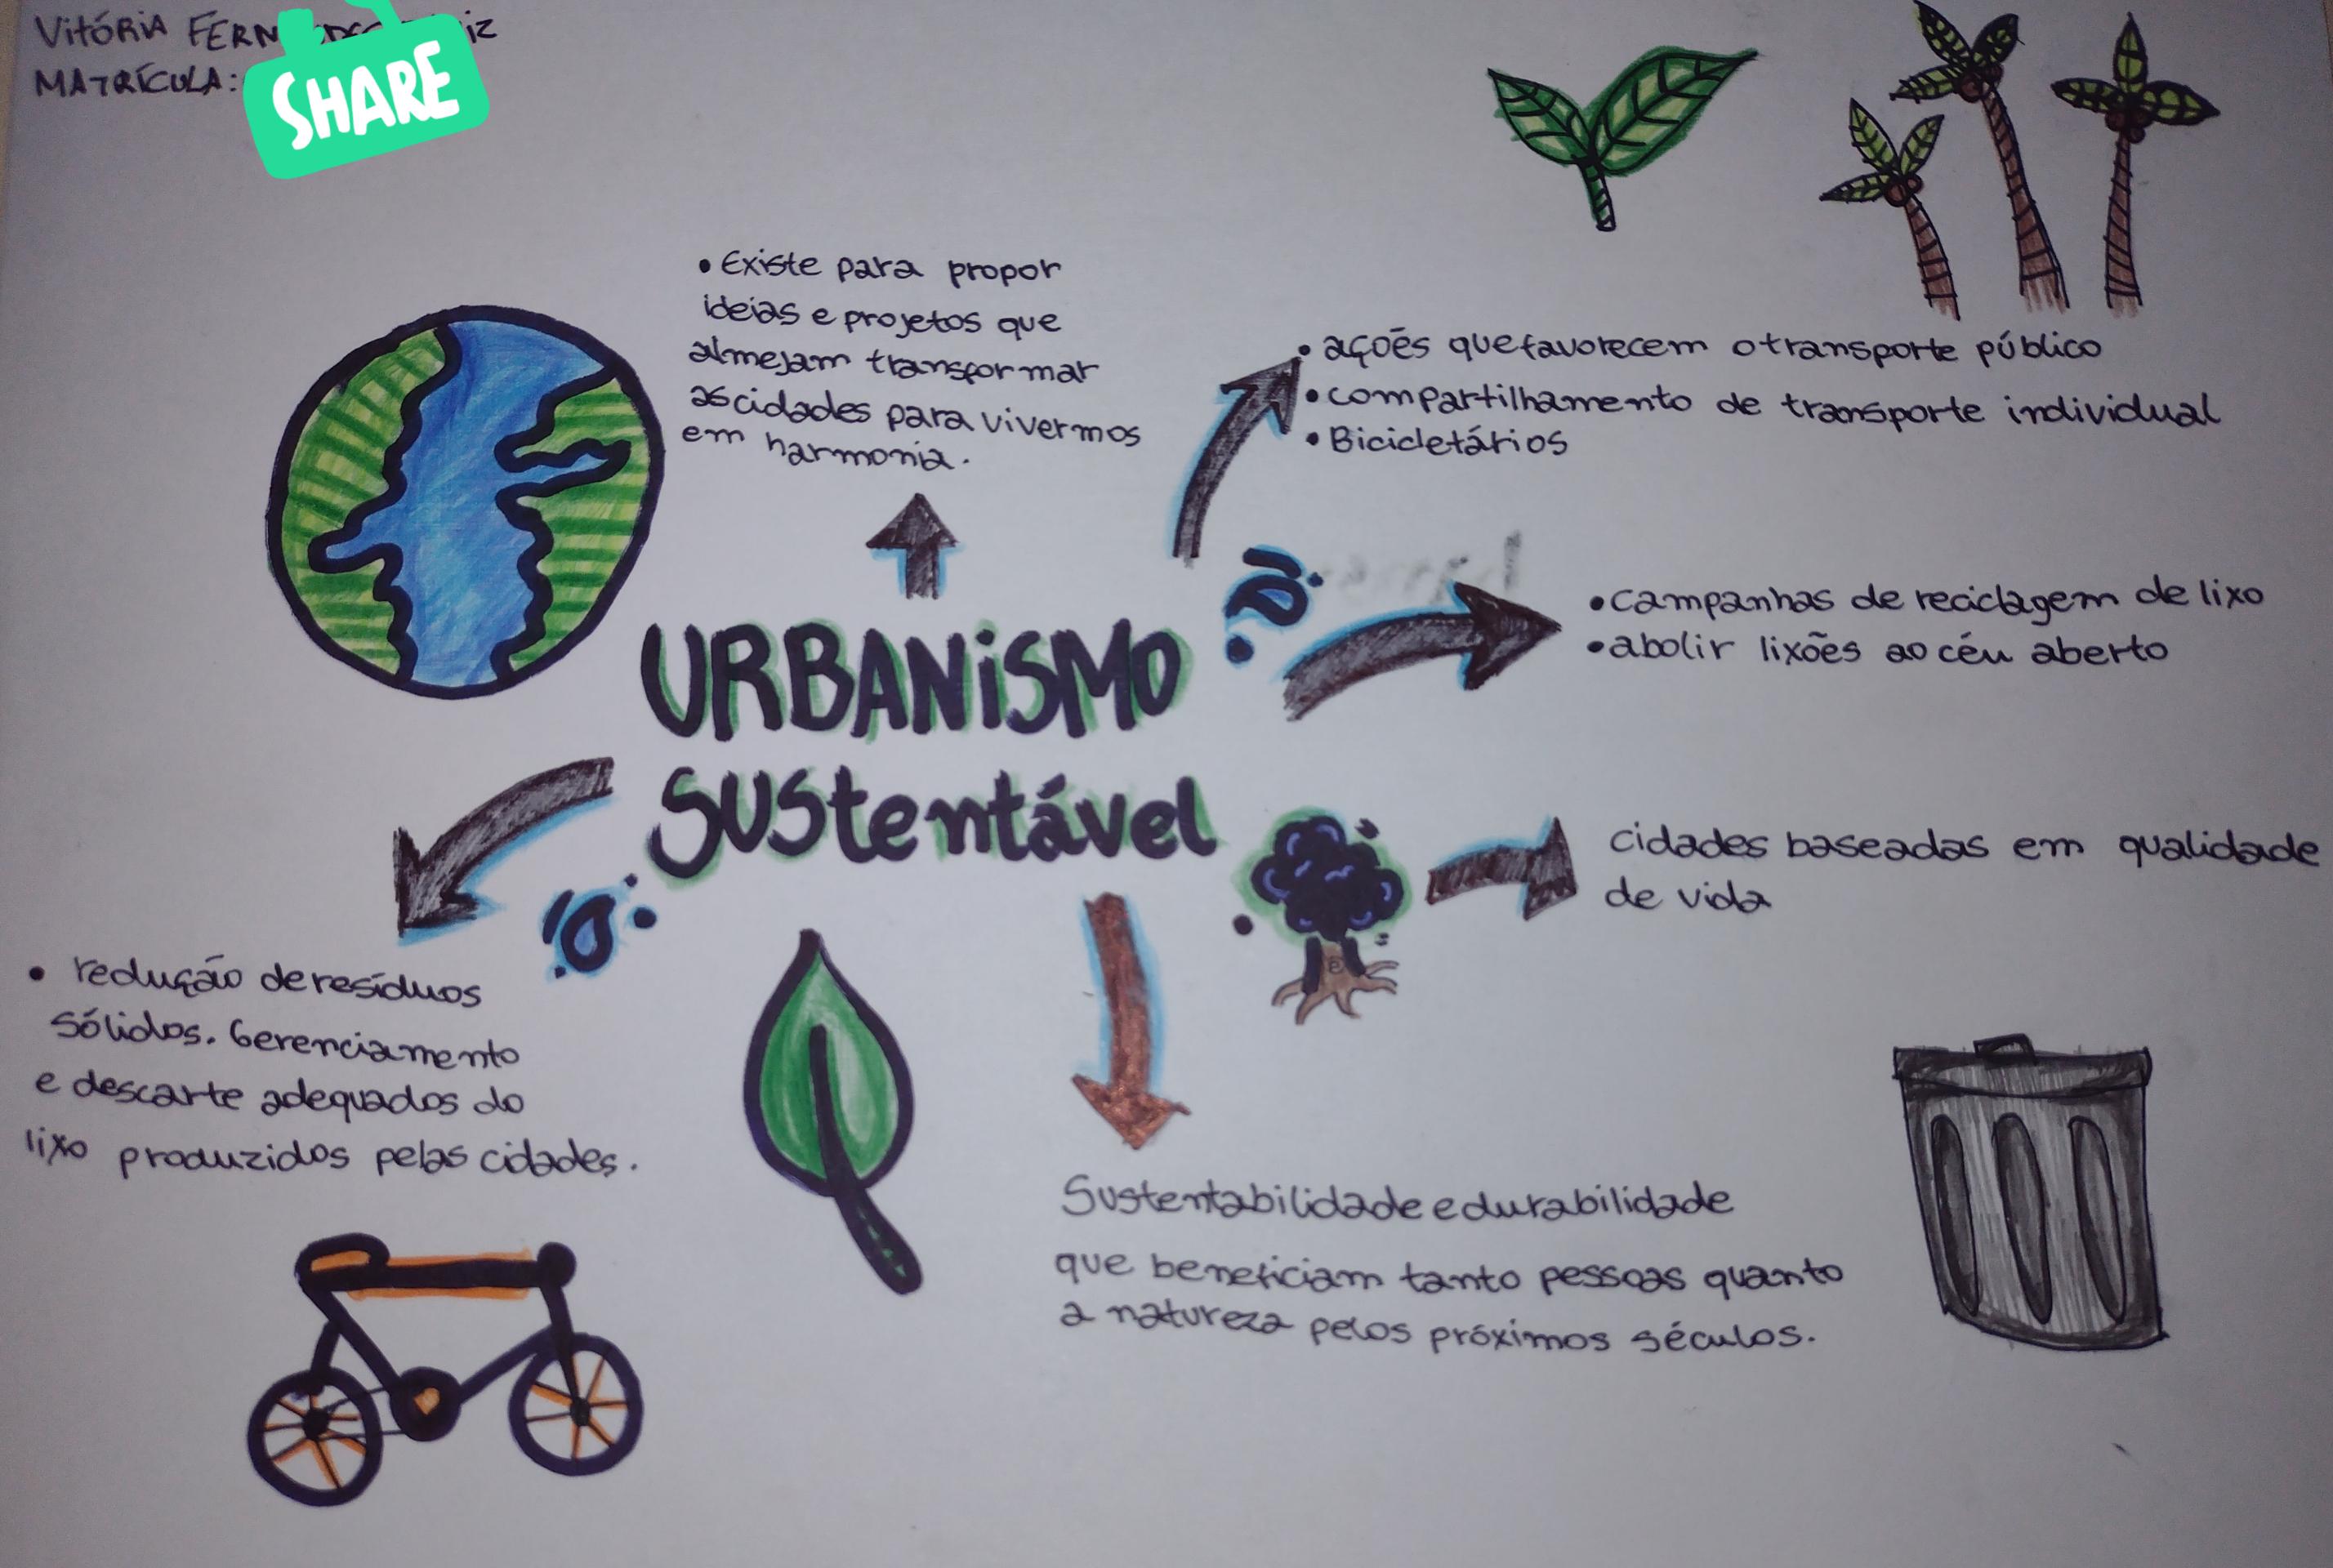 Vitória
MATRÍCULA:
SHARE
• Existe para propor
ideias e projetos que
almejam transformar
as cidades para vivermos
em harmonia.
• açoēs que favorecem o transporte público
• compartilhamento de transporte individual
• Bicicletários
• campanhas de reciclagem de lixo
• abolir lixões ao céu aberto
URBANiSMO
SUStentável
cidades baseadas em qualidade
de vida
• redução de resíduos
sólidos. Gerenciamento
e descarte adequados do
lixo produzidos pelas cidades.
Sustentabilidade e durabilidade
que beneficiam tanto pessoas quanto
a natureza pelos próximos séculos.